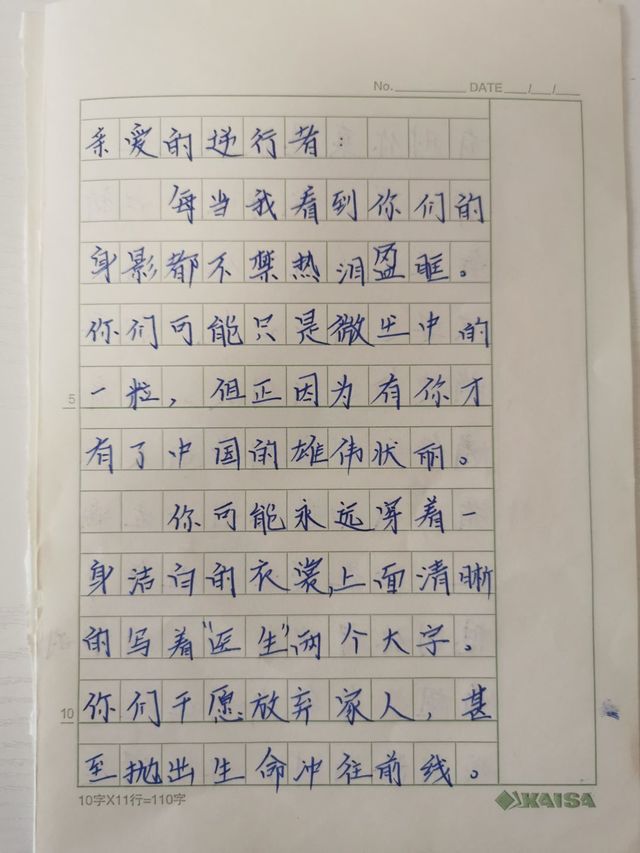 No. DATE / /
亲爱的逆行者:
每当我看到你们的
身影都不禁热泪盈眶。
你们可能只是微尘中的
5 一粒，但正因为有你才
有了中国的雄伟状丽。
你可能永远穿着一
身洁白的衣裳,上面清晰
的写着"医生"两个大字。
10 你们干愿放弃家人，甚
至抛出生命冲往前线。
10字X11行=110字 KAISA